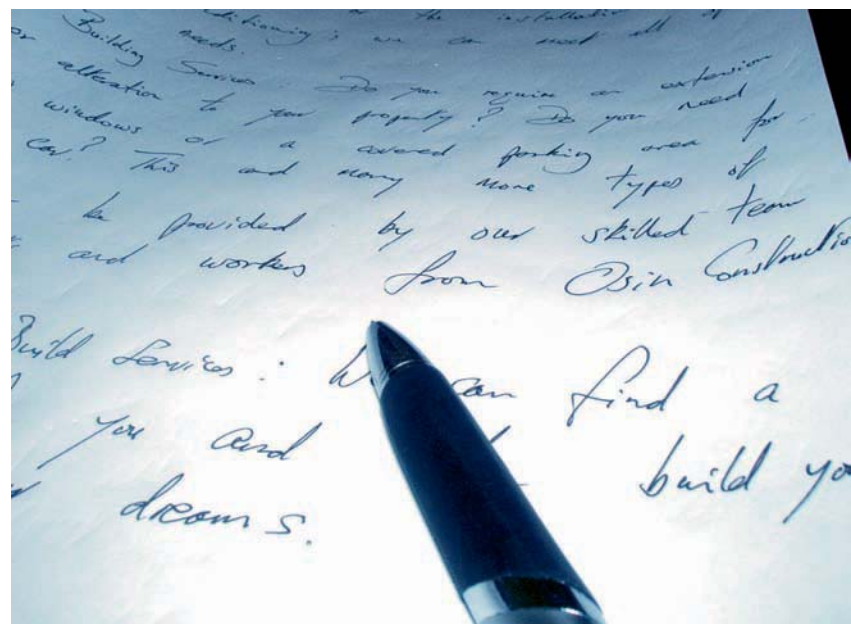 the installation of
needs. we can meet all
Building Services: Do you require an extension
or alteration to your property? Do you need
windows or a covered parking area for
car? This and many more types of
be provided by our skilled team
and workers from Osin Constructio
Build Services: We can find a
you and build you
dreams.